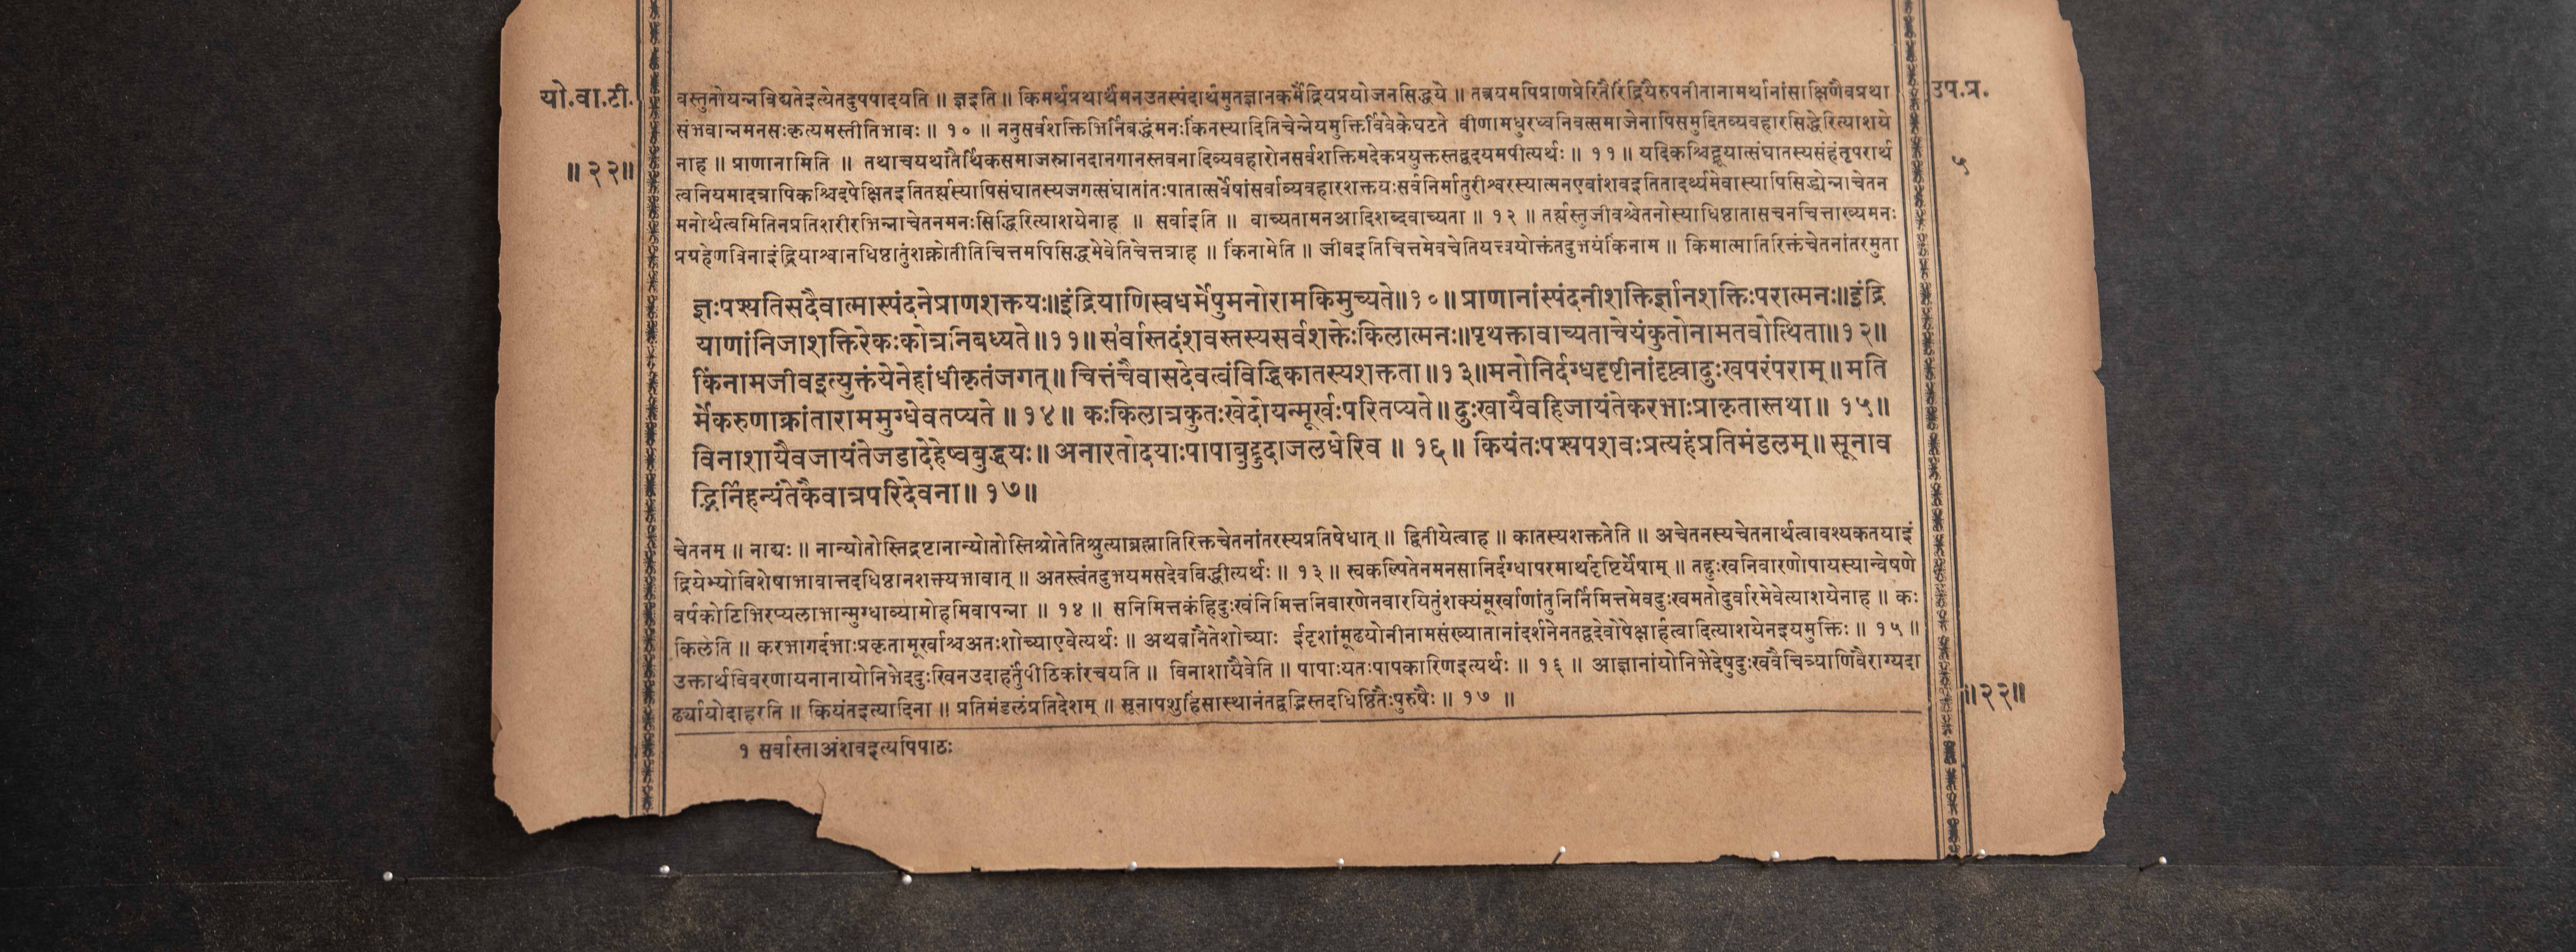 यो.वा.टी.
॥२२॥
उप.प्र.
५
वस्तुतोयन्नविद्यतेइत्येतदुपपादयति ॥ ज्ञइति ॥ किमर्थप्रथार्थमनउतस्पंदार्थमुतज्ञानकर्मेंद्रियप्रयोजनसिद्धये ॥ तत्रयमपिप्राणप्रेरितैरिंद्रियैरुपनीतानामर्थानांसाक्षिणैवप्रथा
संभवान्नमनसःकृत्यमस्तीतिभावः ॥ १० ॥ ननुसर्वशक्तिभिर्निबद्धंमनःकिंनस्यादितिचेन्नेयमुक्तिर्विवेकेघटते वीणामधुरध्वनिवत्समाजेनापिसमुदितव्यवहारसिद्धेरित्याशये
नाह ॥ प्राणानामिति ॥ तथाचयथातैर्थिकसमाजस्नानदानगानस्तवनादिव्यवहारोनसर्वशक्तिमदेकप्रयुक्तस्तद्वदयमपीत्यर्थः ॥ ११ ॥ यदिकश्चिद्ब्रूयात्संघातस्यसंहंतृपरार्थ
त्वनियमादत्रापिकश्चिदपेक्षितइतितर्ह्यस्यापिसंघातस्यजगत्संघातांतःपातात्सर्वेषांसर्वाव्यवहारशक्तयःसर्वनिर्मातुरीश्वरस्यात्मनएवांशवइतितादर्थ्यमेवास्यापिसिद्ध्येन्नाचेतन
मनोर्थत्वमितिनप्रतिशरीरभिन्नाचेतनमनःसिद्धिरित्याशयेनाह ॥ सर्वाइति ॥ वाच्यतामनआदिशब्दवाच्यता ॥ १२ ॥ तर्ह्यस्तुजीवश्चेतनोस्याधिष्ठातासचनचित्ताख्यमनः
प्रग्रहेणविनाइंद्रियाश्वानधिष्ठातुंशक्नोतीतिचित्तमपिसिद्धमेवेतिचेत्तत्राह ॥ किंनामेति ॥ जीवइतिचित्तमेवचेतियत्त्वयोक्तंतदुभयंकिंनाम ॥ किमात्मातिरिक्तंचेतनांतरमुता
ज्ञःपश्यतिसदैवात्मास्पंदनेप्राणशक्तयः॥इंद्रियाणिस्वधर्मेषुमनोरामकिमुच्यते॥१०॥ प्राणानांस्पंदनीशक्तिर्ज्ञानशक्तिःपरात्मनः॥इंद्रि
याणांनिजाशक्तिरेकःकोत्रनिबध्यते॥११॥ सर्वास्तदंशवस्तस्यसर्वशक्तेःकिलात्मनः॥पृथक्तावाच्यताचेयंकुतोनामतवोत्थिता॥१२॥
किंनामजीवइत्युक्तंयेनेहांधीकृतंजगत्॥ चित्तंचैवासदेवत्वंविद्धिकातस्यशक्तता॥१३॥मनोनिर्दग्धदृष्टीनांदृष्ट्वादुःखपरंपराम्॥मति
र्मेकरुणाक्रांताराममुग्धेवतप्यते ॥ १४ ॥ कःकिलात्रकुतःखेदोयन्मूर्खःपरितप्यते॥ दुःखायैवहिजायंतेकरभाःप्राकृतास्तथा॥ १५॥
विनाशायैवजायंतेजडादेहेष्वबुद्धयः॥ अनारतोदयाःपापाबुद्बुदाजलधेरिव ॥ १६॥ कियंतःपश्यपशवःप्रत्यहंप्रतिमंडलम्॥ सूनाव
द्भिर्निहन्यंतेकैवात्रपरिदेवना॥ १७॥
चेतनम् ॥ नाद्यः ॥ नान्योतोस्तिद्रष्टानान्योतोस्तिश्रोतेतिश्रुत्याब्रह्मातिरिक्तचेतनांतरस्यप्रतिषेधात् ॥ द्वितीयेत्वाह ॥ कातस्यशक्ततेति ॥ अचेतनस्यचेतनार्थत्वावश्यकतयाइं
द्रियेभ्योविशेषाभावात्तदधिष्ठानशक्तयभावात् ॥ अतस्त्वंतदुभयमसदेवविद्धीत्यर्थः ॥ १३ ॥ स्वकल्पितेनमनसानिर्दग्धापरमार्थदृष्टिर्येषाम् ॥ तद्दुःखनिवारणोपायस्यान्वेषणे
वर्षकोटिभिरप्यलाभान्मुग्धाव्यामोहमिवापन्ना ॥ १४ ॥ सनिमित्तकंहिदुःखंनिमित्तनिवारणेनवारयितुंशक्यंमूर्खाणांतुनिर्निमित्तमेवदुःखमतोदुर्वारमेवेत्याशयेनाह ॥ कः
किलेति ॥ करभागर्दभाःप्रकृतामूर्खाश्चअतःशोच्याएवेत्यर्थः ॥ अथवानैतेशोच्याः ईदृशांमूढयोनीनामसंख्यातानांदर्शनेनतद्वदेवोपेक्षार्हत्वादित्याशयेनइयमुक्तिः ॥ १५ ॥
उक्तार्थविवरणायनानायोनिभेददुःखिनउदाहर्तुंपीठिकांरचयति ॥ विनाशायैवेति ॥ पापाःयतःपापकारिणइत्यर्थः ॥ १६ ॥ आज्ञानांयोनिभेदेषुदुःखवैचित्र्याणिवैराग्यदा
र्ढ्यायोदाहरति ॥ कियंतइत्यादिना ॥ प्रतिमंडलंप्रतिदेशम् ॥ सूनापशुहिंसास्थानंतद्वद्भिस्तदधिष्ठितैःपुरुषैः ॥ १७ ॥
॥२२॥
१ सर्वास्ताअंशवइत्यपिपाठः